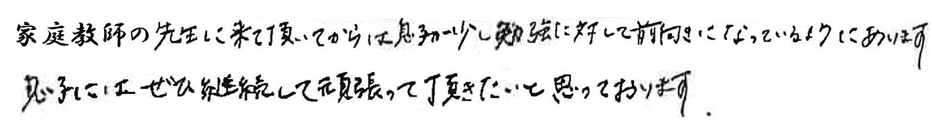 家庭教師の先生に来て頂いてからは息子が少し勉強に対して前向きになっているようにあります
息子にはぜひ継続して頑張って頂きたいと思っております.